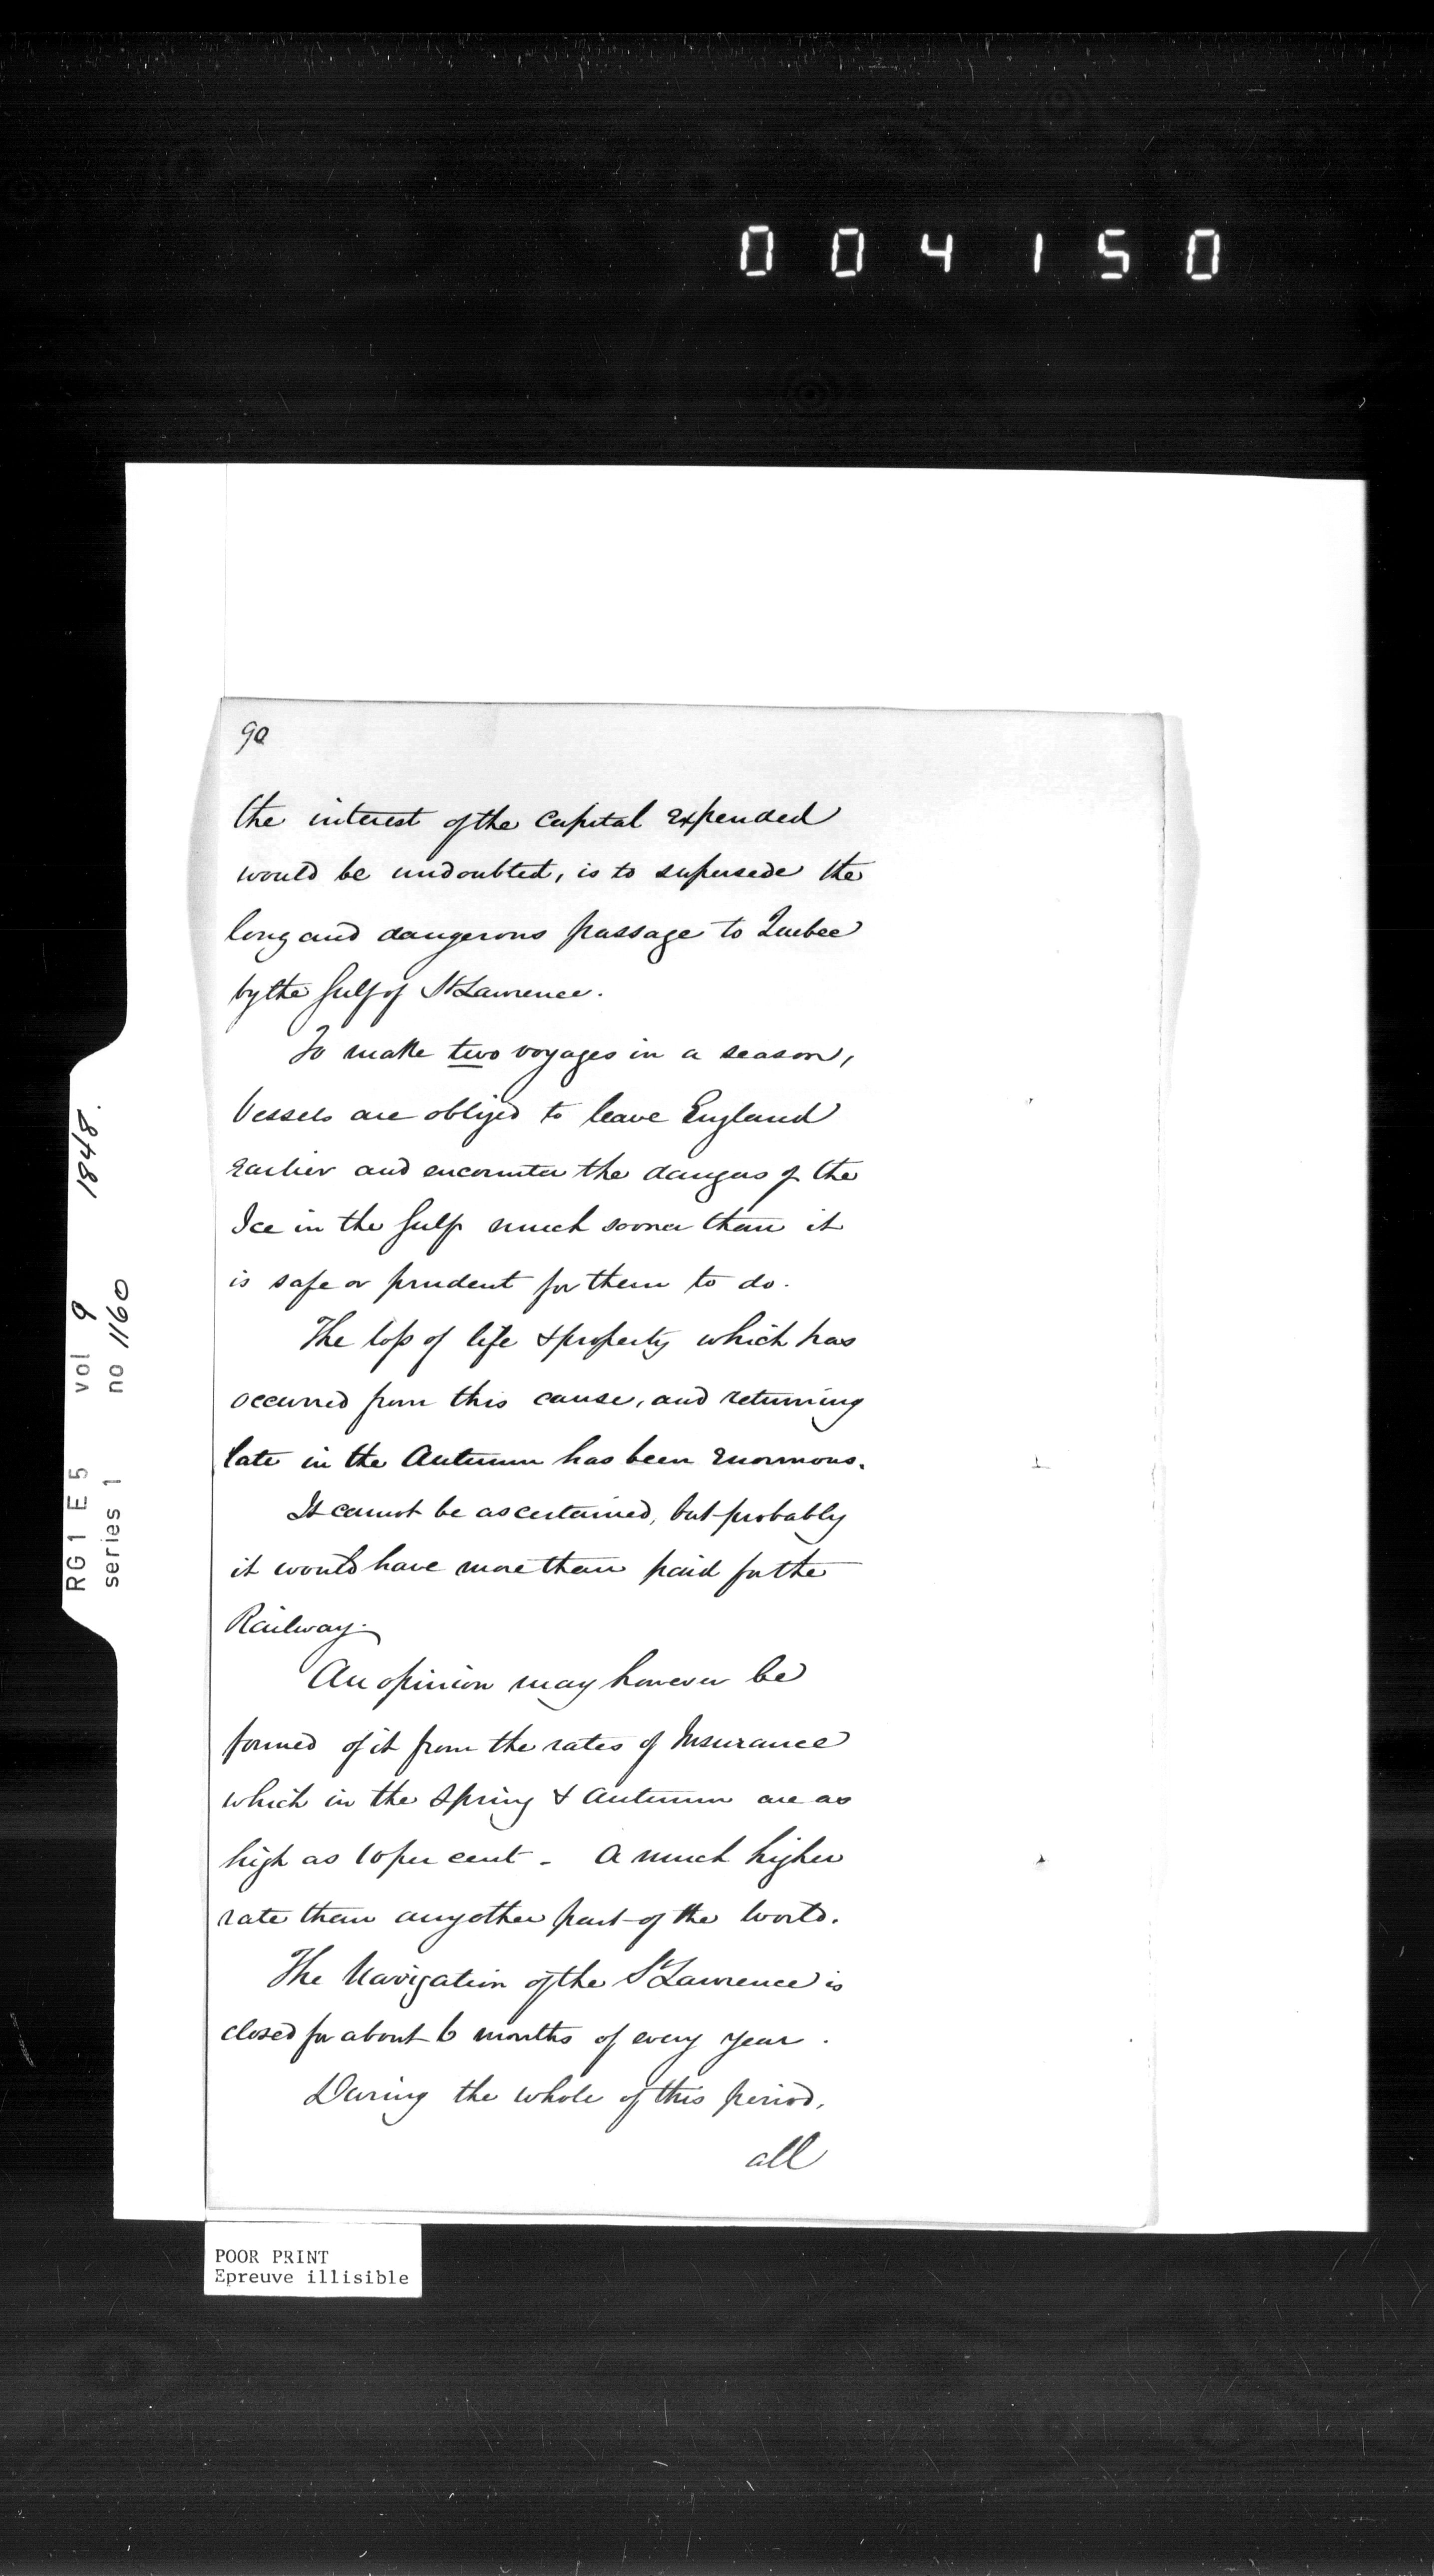 004150
90
the interest of the Capital Expended
would be undoubted, is to supersede the
long and dangerous passage to Quebec
by the Gulf of St Lawrence.
To make two voyages in a season,
Vessels are obliged to leave England
Earlier and encounter the dangers of the
Ice in the Gulf much sooner than it
is safe or prudent for them to do.
The loss of life & property which has
occurred from this cause, and returning
late in the Autumn has been Enormous.
It cannot be ascertained, but probably
it would have more than paid for the
Railway.
An opinion may however be
formed of it from the rates of Insurance
which in the Spring & Autumn are as
high as 10 per cent - A much higher
rate than any other part of the World.
The Navigation of the St Lawrence is
closed for about 6 months of every year.
During the whole of this period,
all
RG1 E5 vol 9 1848.
series 1 no 1160
POOR PRINT
Epreuve illisible